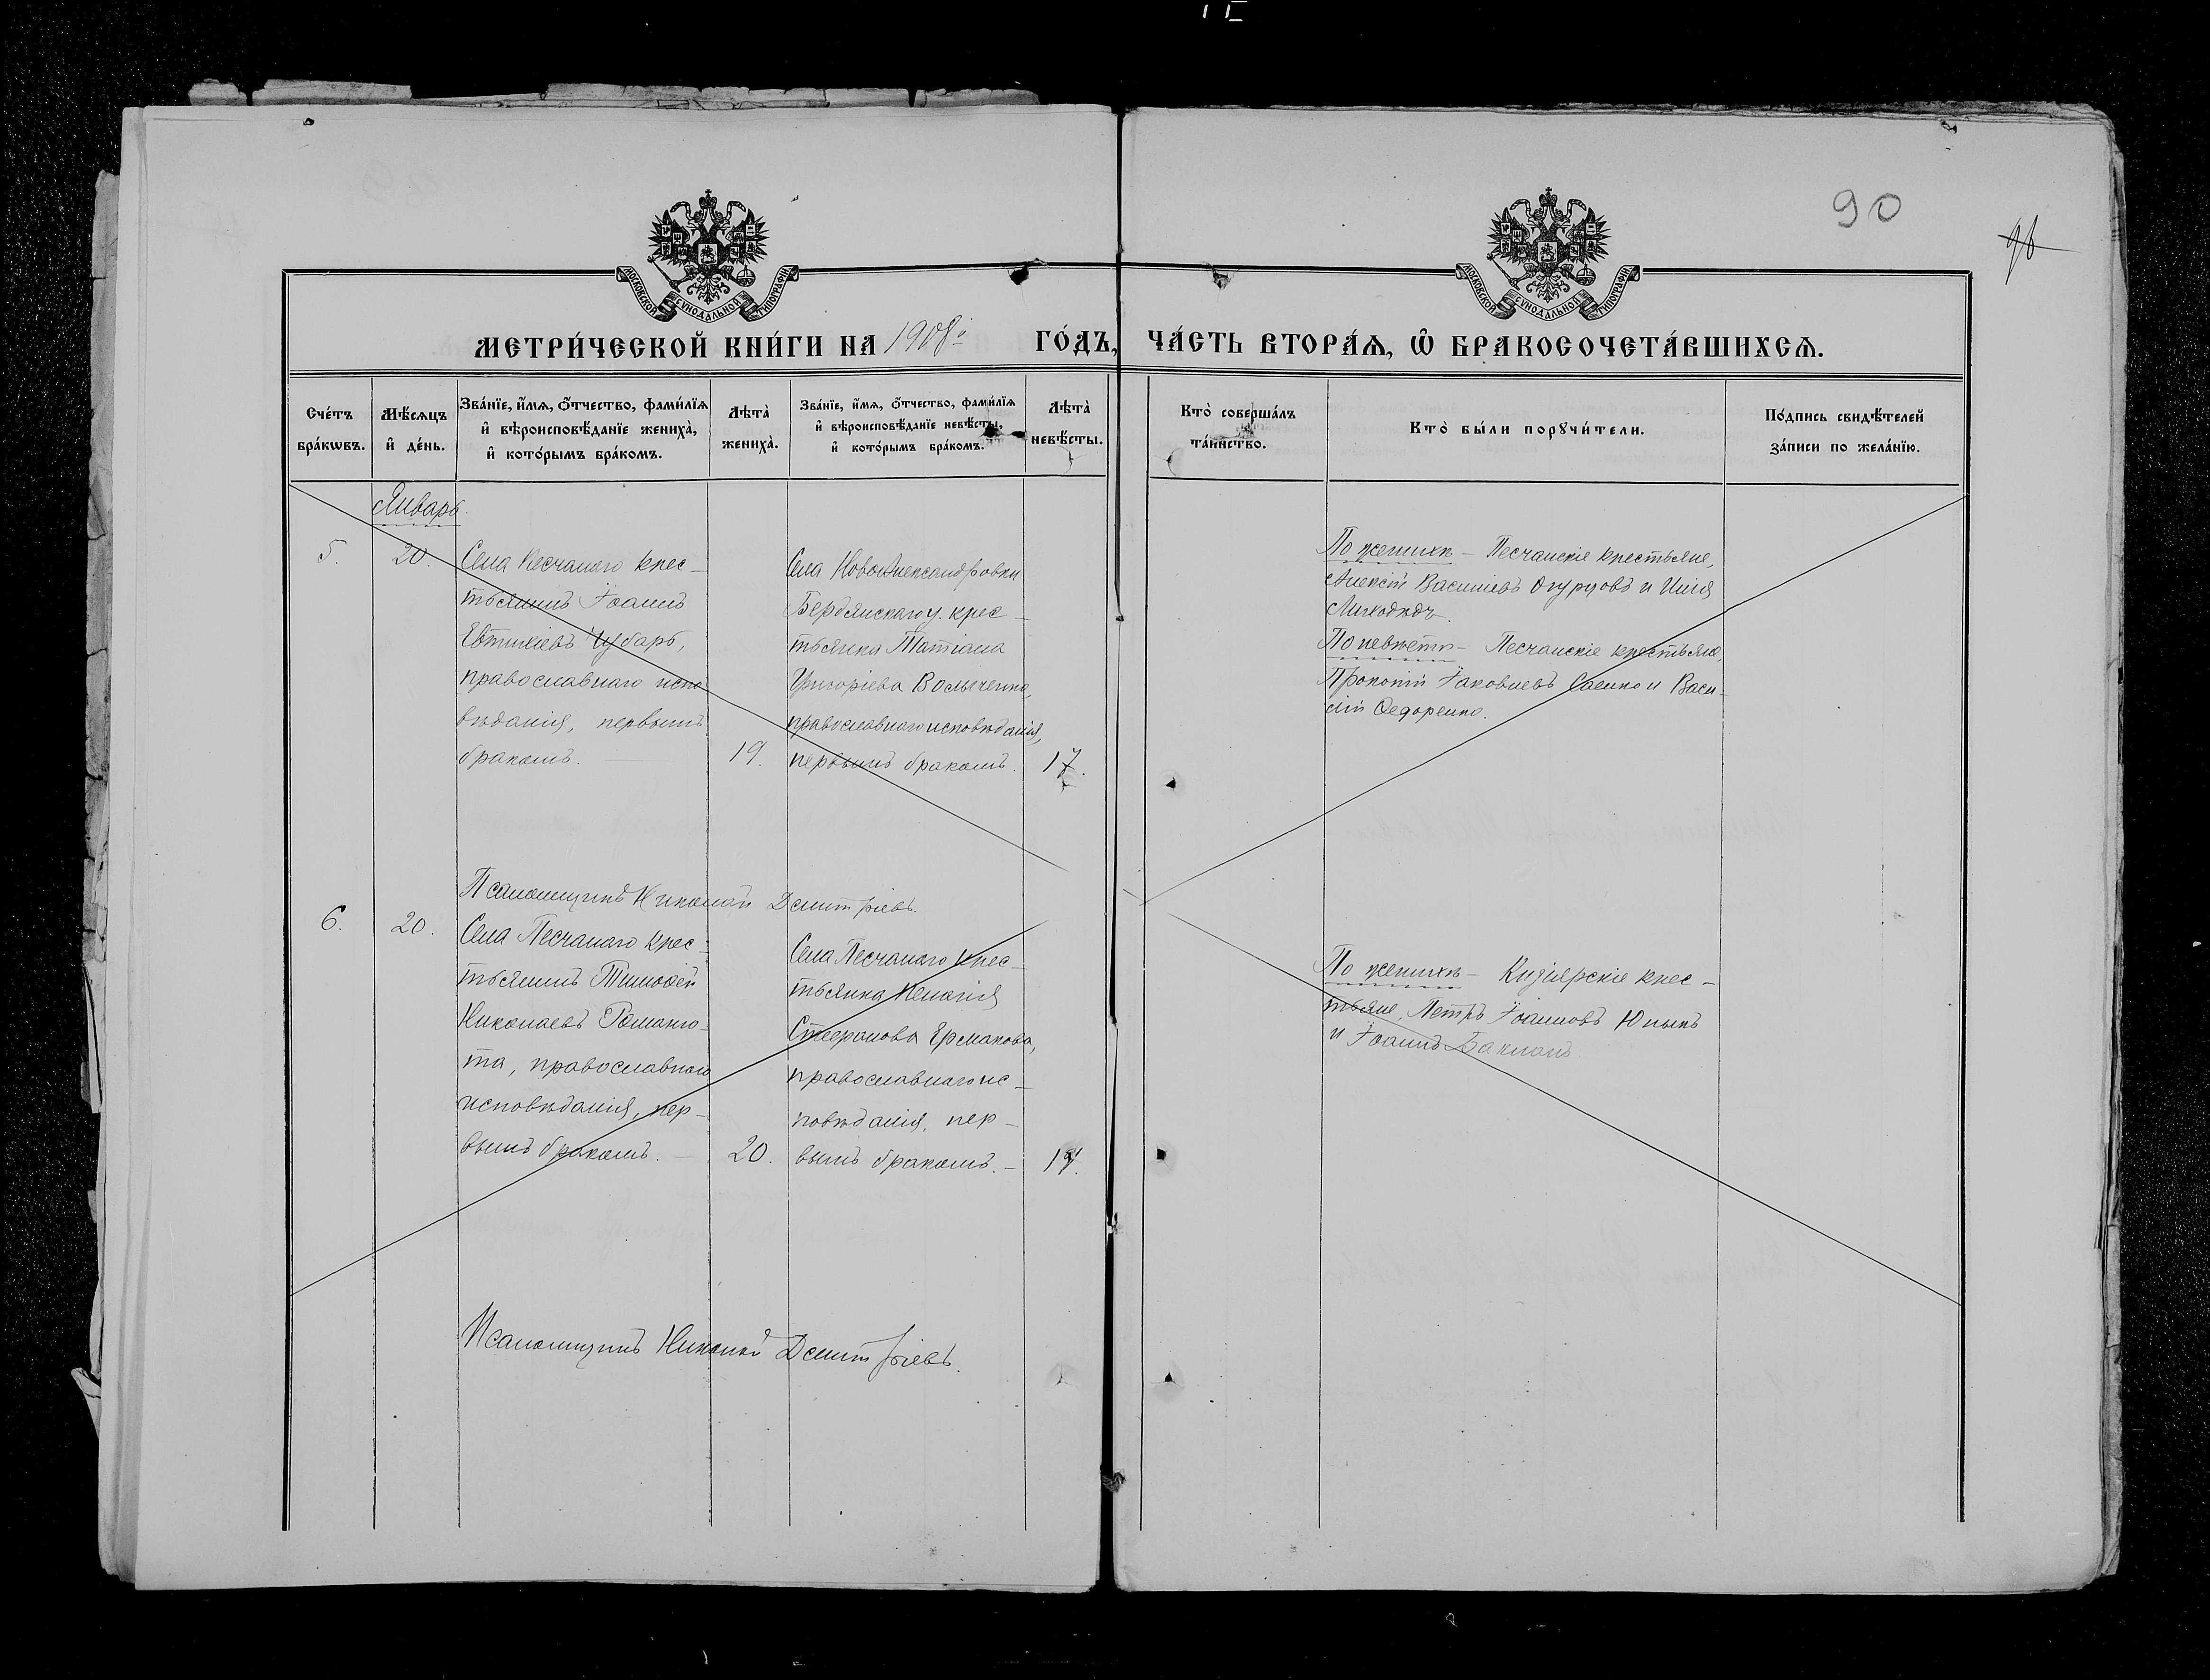 90
96
МОСКОВСКОЙ СѴНОДАЛЬНОЙ ТИПОГРАФІИ
МОСКОВСКОЙ СѴНОДАЛЬНОЙ ТИПОГРАФІИ
МЕТРИ́ЧЕСКОЙ КНИ́ГИ НА 1908й ГО́ДЪ, ЧА́СТЬ ВТОРА́Ѧ, Ѡ҆ БРАКОСОЧЕТА́ВШИХСѦ.
Сче́тъ
бра́кѡвъ.
Мѣ́сѧцъ
и҆ де́нь.
Зва́нїе, и҆́мѧ, ѻ҆́тчество, фами́лїѧ
и҆ вѣроисповѣ́данїе жениха̀,
и҆ кото́рымъ бра́комъ.
Лѣта̀
жениха̀.
Зва́нїе, и҆́мѧ, ѻ҆́тчество, фами́лїѧ
и҆ вѣроисповѣ́данїе невѣ́сты,
и҆ кото́рымъ бра́комъ.
Лѣта̀
невѣ́сты.
Кто̀ соверша́лъ
та́инство.
Кто̀ бы́ли порꙋчи́тели.
По́дпись свидѣ́телей
за́писи по жела́нїю.
Январь.
5.
20.
Села Песчанаго крес-
тьянинъ Іоаннъ
Евтихіевъ Чубарь,
православнаго испо
вѣданія, первымъ
бракомъ.
19.
Села НовоАлександровки
Бердянскаго у. крес-
тьянка Татіана
Григоріева
православнаго исповѣданія,
первымъ бракомъ.
17.
По женихѣ – Песчанскіе крестьяне,
Алексій Васильевъ Огурцовъ и Илія
По невѣстѣ – Песчанскіе крестьяне,
Прокопій Іаковлевъ Саенко и Васи-
лій Ѳедоренко.
Псаломщикъ Николай Димитріевъ.
6.
20.
Села Песчанаго крес-
тьянинъ Тимоѳей
Николаевъ Романю-
та, православнаго
исповѣданія, пер-
вымъ бракомъ. –
20.
Села Песчанаго крес-
тьянка Пелагія
Стефанова Ермакова,
православнаго ис-
повѣданія, пер-
вымъ бракомъ. –
По женихѣ – Кизіярскіе крес-
тьяне, Петръ Іоанновъ
и Іоаннъ Бакланъ
Псаломщикъ Николай Димитріевъ.